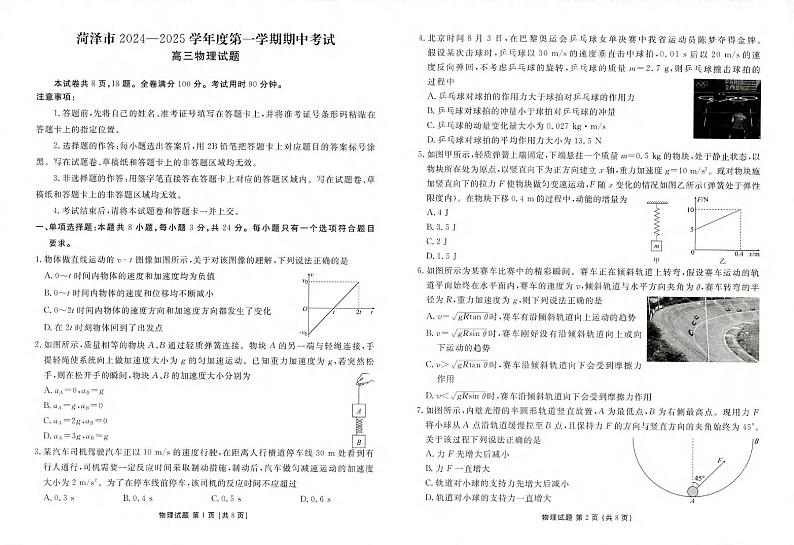 菏泽市 2024—2025 学年度第一学期期中考试
高三物理试题
本试卷共 8 页,18 题。全卷满分 100 分。考试用时 90 分钟。
注意事项:
1.答题前,先将自己的姓名、准考证号填写在答题卡上,并将准考证号条形码粘贴在
答题卡上的指定位置。
2.选择题的作答:每小题选出答案后,用 2B 铅笔把答题卡上对应题目的答案标号涂
黑。写在试题卷、草稿纸和答题卡上的非答题区域均无效。
3.非选择题的作答:用签字笔直接答在答题卡上对应的答题区域内。写在试题卷、草
稿纸和答题卡上的非答题区域均无效。
4.考试结束后,请将本试题卷和答题卡一并上交。
一、单项选择题:本题共 8 小题,每小题 3 分,共 24 分。每小题只有一个选项符合题目
要求。
1.物体做直线运动的 v-t 图像如图所示,关于对该图像的理解,下列说法正确的是
A.0~t 时间内物体的速度和加速度均为负值
B.0~t 时间内物体的速度和位移均不断减小
C.0~2t 时间内物体的速度方向和加速度方向都发生了变化
D.在 2t 时刻物体回到了出发点
v
v₀
O
t
2t
t
-v₀
2.如图所示,质量相等的物块 A、B 通过轻质弹簧连接。物块 A 的另一端与轻绳连接,手
提轻绳使系统向上做加速度大小为 g 的匀加速运动。已知重力加速度为 g,若突然松
手,则在松开手的瞬间,物块 A、B 的加速度大小分别为
A. aA=0,aB=g
B. aA=g,aB=0
C. aA=2g,aB=0
D. aA=3g,aB=g
A
B
3.某汽车司机驾驶汽车正以 10 m/s 的速度行驶,在距离人行横道停车线 30 m 处看到有
行人通行,司机需要一定反应时间采取制动措施,制动后,汽车做匀减速运动的加速度
大小为 2 m/s²。为了在停车线前停车,该司机的反应时间不应超过
A. 0.3 s B. 0.4 s C. 0.5 s D. 0.6 s
物理试题 第 1 页 (共 8 页)
4.北京时间 8 月 3 日,在巴黎奥运会乒乓球女单决赛中我省运动员陈梦夺得金牌。
假设某次击球时,乒乓球以 30 m/s 的速度垂直击中球拍,0.01 s 后以 20 m/s 的速
度反向弹回,不考虑乒乓球的旋转,乒乓球的质量 m=2.7 g,则乒乓球撞击球拍的
过程中
A.乒乓球对球拍的作用力大于球拍对乒乓球的作用力
B.乒乓球对球拍的冲量小于球拍对乒乓球的冲量
C.乒乓球的动量变化量大小为 0.027 kg·m/s
D.乒乓球对球拍的平均作用力大小为 13.5 N
5.如图甲所示,轻质弹簧上端固定,下端悬挂一个质量 m=0.5 kg 的物块,处于静止状态,以
物块所在处为原点,以竖直向下为正方向建立 x 轴,重力加速度 g=10 m/s²。现对物块施
加竖直向下的拉力 F 使物块做匀变速运动,F 随 x 变化的情况如图乙所示(弹簧处于弹性
限度内)。在物块下移 0.4 m 的过程中,动能的增量为
A. 4 J
B. 3.5 J
C. 2 J
D. 1.5 J
m
甲
F/N
10
5
O
0.4
x/m
乙
6.如图所示为某赛车比赛中的精彩瞬间。赛车正在倾斜轨道上转弯,假设赛车运动的轨
道平面始终在水平面内,赛车的速度为 v,倾斜轨道与水平方向夹角为 θ,赛车转弯的半
径为 R,重力加速度为 g,则下列说法正确的是
A. v=√gRtan θ时,赛车没有沿倾斜轨道向上运动的趋势
B. v=√gRsin θ时,赛车刚好没有沿倾斜轨道向上或向
下运动的趋势
C. v>√gRtan θ时,赛车沿倾斜轨道向下会受到摩擦力
作用
D. v<√gRsin θ时,赛车沿倾斜轨道向下会受到摩擦力作用
7.如图所示,内壁光滑的半圆形轨道竖直放置,A 为最低点,B 为右侧最高点。现用力 F
将小球从 A 点沿轨道缓慢拉至 B 点,且保持力 F 的方向与竖直方向的夹角始终为 45°。
关于该过程下列说法正确的是
A.力 F 先增大后减小
B.力 F 一直增大
C.轨道对小球的支持力先增大后减小
D.轨道对小球的支持力一直增大
B
F
45°
A
物理试题 第 2 页 (共 8 页)